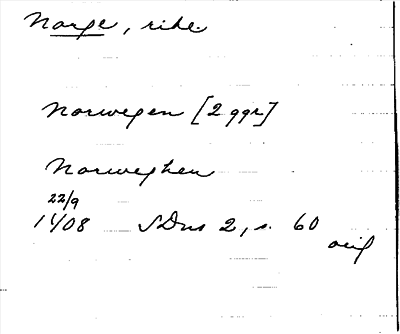 Norge, rike
Norwegen [2 ggr]
Norweghen
22/9
1408 SDns 2, s. 60
orig